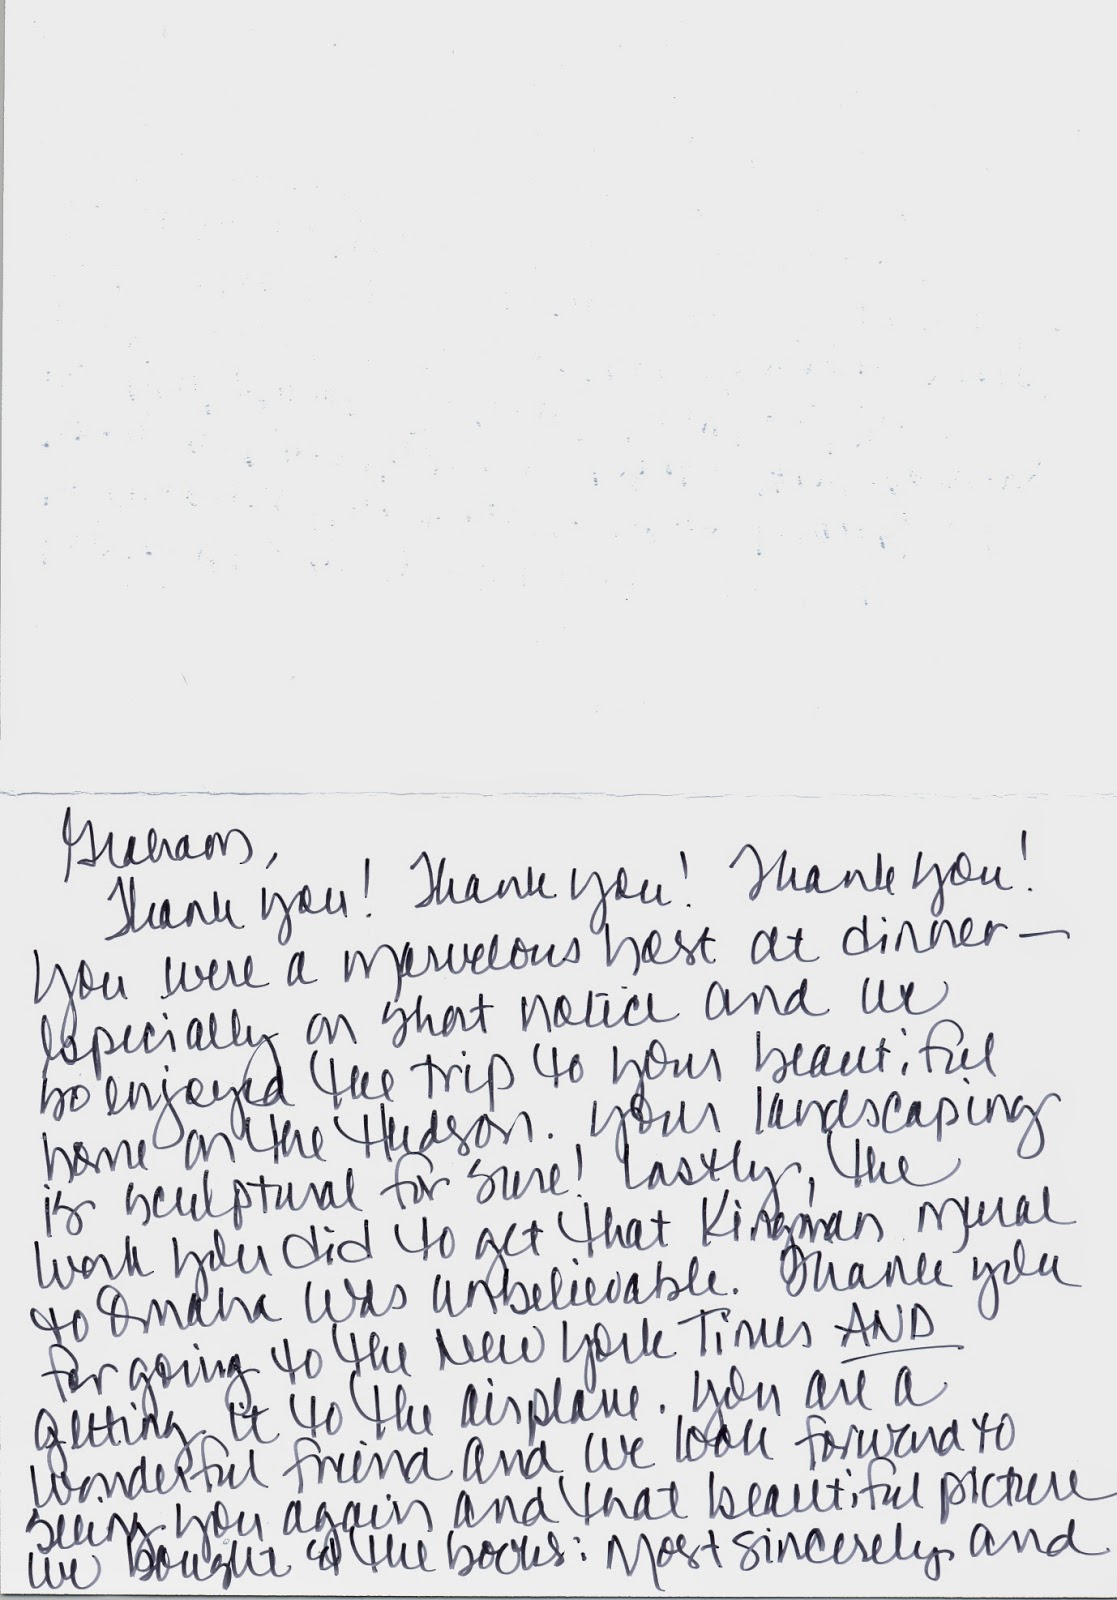 Graham,
Thank you! Thank you! Thank you!
You were a marvelous host at dinner —
Especially on short notice and we
so enjoyed the trip to your beautiful
home on the Hudson. Your landscaping
is sculptural for sure! Lastly, the
work you did to get that Kingman mural
to Omaha was unbelievable. Thank you
for going to the New York Times AND
getting it to the airplane. You are a
wonderful friend and we look forward to
seeing you again and that beautiful picture
we bought & the books: Most sincerely and